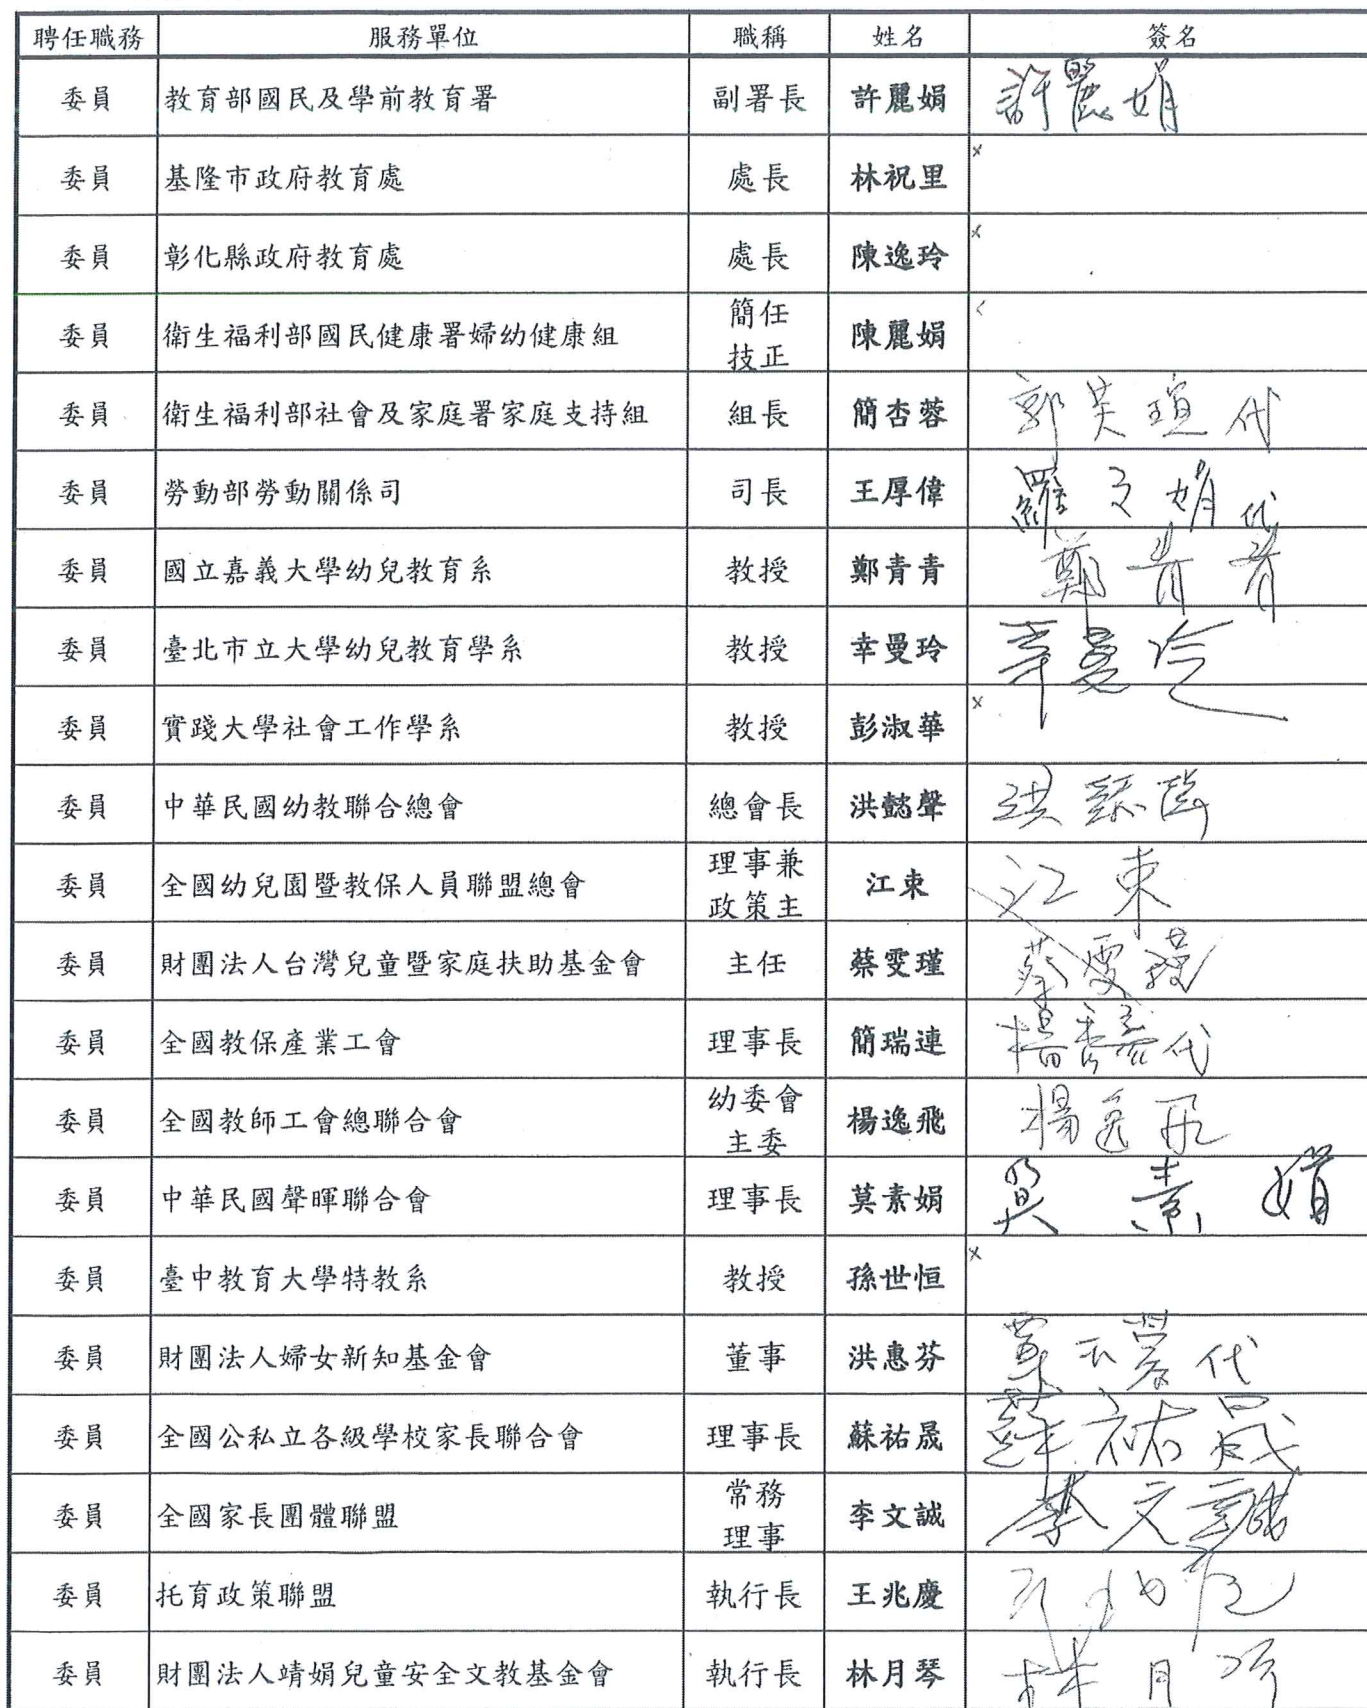 聘任職務 服務單位 職稱 姓名 簽名
委員 教育部國民及學前教育署 副署長 許麗娟 許麗娟
委員 基隆市政府教育處 處長 林祝里 x
委員 彰化縣政府教育處 處長 陳逸玲 x
委員 衛生福利部國民健康署婦幼健康組 簡任
技正 陳麗娟
委員 衛生福利部社會及家庭署家庭支持組 組長 簡杏蓉 郭芙瑄代
委員 勞動部勞動關係司 司長 王厚偉 羅文娟代
委員 國立嘉義大學幼兒教育系 教授 鄭青青 鄭青青
委員 臺北市立大學幼兒教育學系 教授 幸曼玲 幸曼玲
委員 實踐大學社會工作學系 教授 彭淑華 x
委員 中華民國幼教聯合總會 總會長 洪懿聲 洪懿聲
委員 全國幼兒園暨教保人員聯盟總會 理事兼
政策主 江東 江東
委員 財團法人台灣兒童暨家庭扶助基金會 主任 蔡雯瑾 蔡雯瑾
委員 全國教保產業工會 理事長 簡瑞連 代
委員 全國教師工會總聯合會 幼委會
主委 楊逸飛 楊逸飛
委員 中華民國聲暉聯合會 理事長 莫素娟 莫素娟
委員 臺中教育大學特教系 教授 孫世恒 x
委員 財團法人婦女新知基金會 董事 洪惠芬 代
委員 全國公私立各級學校家長聯合會 理事長 蘇祐晟 蘇祐晟
委員 全國家長團體聯盟 常務
理事 李文誠 李文誠
委員 托育政策聯盟 執行長 王兆慶
委員 財團法人靖娟兒童安全文教基金會 執行長 林月琴 林月琴